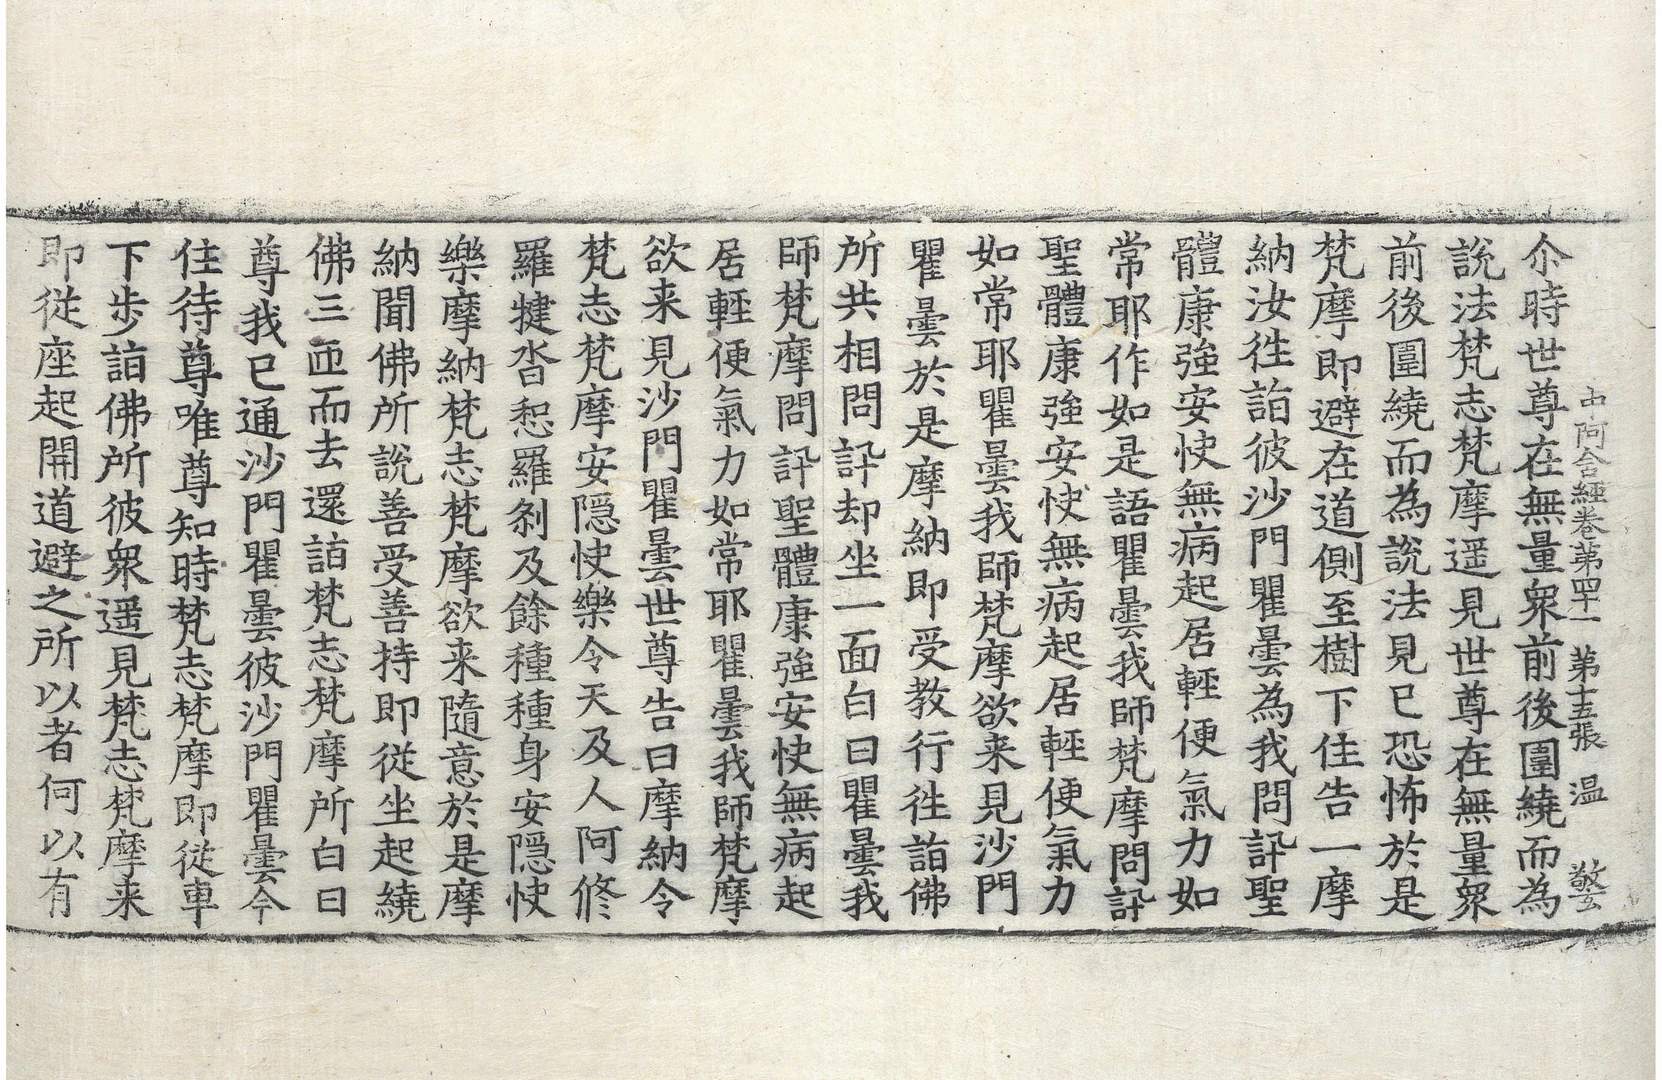 中阿含經卷第四十一 第十五張 温 敬公
尒時世尊在無量衆前後圍繞而為
說法梵志梵摩遥見世尊在無量衆
前後圍繞而為說法見已恐怖於是
梵摩即避在道側至樹下住告一摩
納汝徃詣彼沙門瞿曇為我問訊聖
體康強安快無病起居輕便氣力如
常耶作如是語瞿曇我師梵摩問訊
聖體康強安快無病起居輕便氣力
如常耶瞿曇我師梵摩欲来見沙門
瞿曇於是摩納即受教行徃詣佛
所共相問訊却坐一面白曰瞿曇我
師梵摩問訊聖體康強安快無病起
居輕便氣力如常耶瞿曇我師梵摩
欲来見沙門瞿曇世尊告曰摩納令
梵志梵摩安隠快樂令天及人阿修
羅揵沓惒羅刹及餘種種身安隠快
樂摩納梵志梵摩欲来隨意於是摩
納聞佛所說善受善持即從坐起繞
佛三匝而去還詣梵志梵摩所白曰
尊我已通沙門瞿曇彼沙門瞿曇今
住待尊唯尊知時梵志梵摩即從車
下步詣佛所彼衆遥見梵志梵摩来
即從座起開道避之所以者何以有